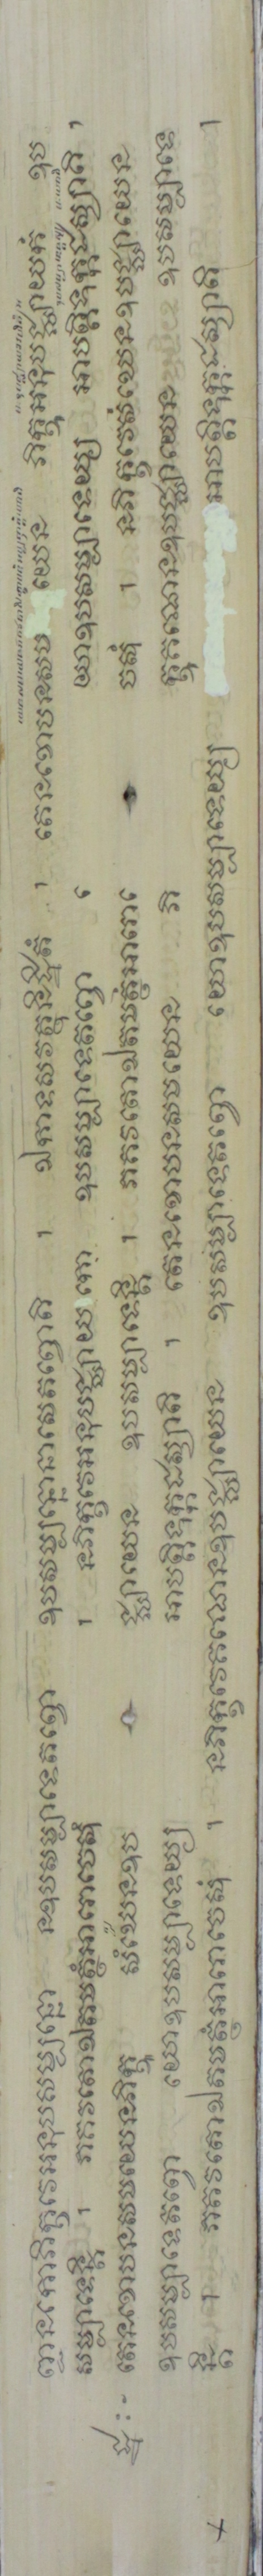 ញ្ជនកោភិក្ខវេអនុបសម្បន្នោ នឧបសម្បាទេតព្វោ ឧបសម្បន្នោនាសេតព្វោតិ ។ ឯកាទសវត្ថុនិដ្ឋិតំ ។ តេនខោបនសម យេន ភិក្ខូអនុបជ្ឈាយកំ ឧប
សម្បាទេន្តិ ។ ភគវតោឯតមត្ថំអារោចេសុំ ។ នភិក្ខវេអនុបជ្ឈាយ កោ ឧបសម្បាទេតព្វោ យោឧបសម្បាទេយ្យ អាបត្តិទុក្កដស្សាតិ ។
តេនខោបនសមយេនភិក្ខូ សំឃេនឧប ជ្ឈាយេន ឧបសម្បាទេន្តិ ។ ភគវតោឯតមត្ថំអារោ ចេសុំ ។ នភិក្ខវេសំឃេនឧបជ្ឈាយេន
ឧបសម្បាទេតព្វោ យោឧបសម្បាទេយ្យ អាបត្តិទុក្កដស្សាតិ ។ តេនខោបនសមយេន ភិ ក្ខូគណេនឧបជ្ឈាយេន ឧបសម្បាទេ
ន្តិ ។ ភគវតោឯតមត្ថំអារោចេសុំ ។ នភិក្ខវេគណេនឧបជ្ឈាយេន ឧបសម្បាទេតព្វោ យោឧបសម្បាទេយ្យ អាបត្តិទុក្កដស្សាតិ ។